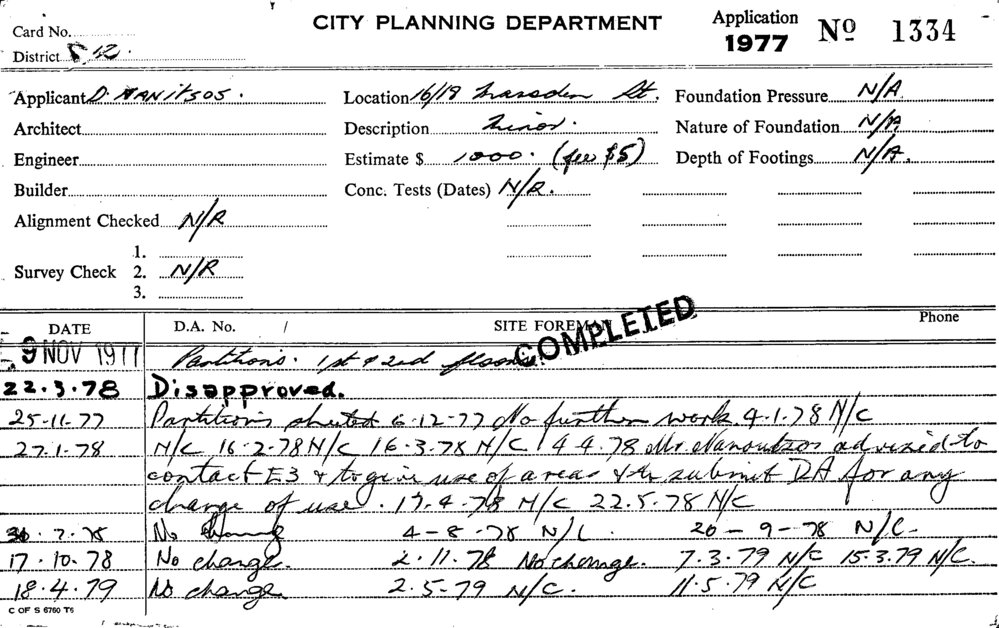 CITY PLANNING DEPARTMENT
Application 1977 Nº 1334
Card No.
District
Applicant D.
Location 16/18 Marsden St.
Foundation Pressure N/A
Architect
Description Minor.
Nature of Foundation N/A
Engineer
Estimate $ 1000. (fee $5)
Depth of Footings N/A.
Builder
Conc. Tests (Dates) N/R.
Alignment Checked N/R
1.
Survey Check 2. N/R
3.
DATE D.A. No. / SITE FOREMAN Phone
COMPLETED
9 NOV 1977 Partitions. 1st & 2nd floors.
22.3.78 Disapproved.
25-11-77 Partitions sheeted 6-12-77 No further work 4-1-78 N/C
27.1.78 N/C 16-2-78 N/C 16-3-78 N/C 4-4-78 Mr advized to
contact E3 & to give use of areas & to submit DA for any
change of use. 17-4-78 N/C 22.5-78 N/C
7.78 No change 4-8-78 N/C. 20-9-78 N/C-
17.10.78 No change. 2.11.78 No change. 7.3.79 N/C 15.3.79 N/C.
18.4.79 No change 2.5-79 N/C. 11.5.79 N/C
C OF S 6760 T5